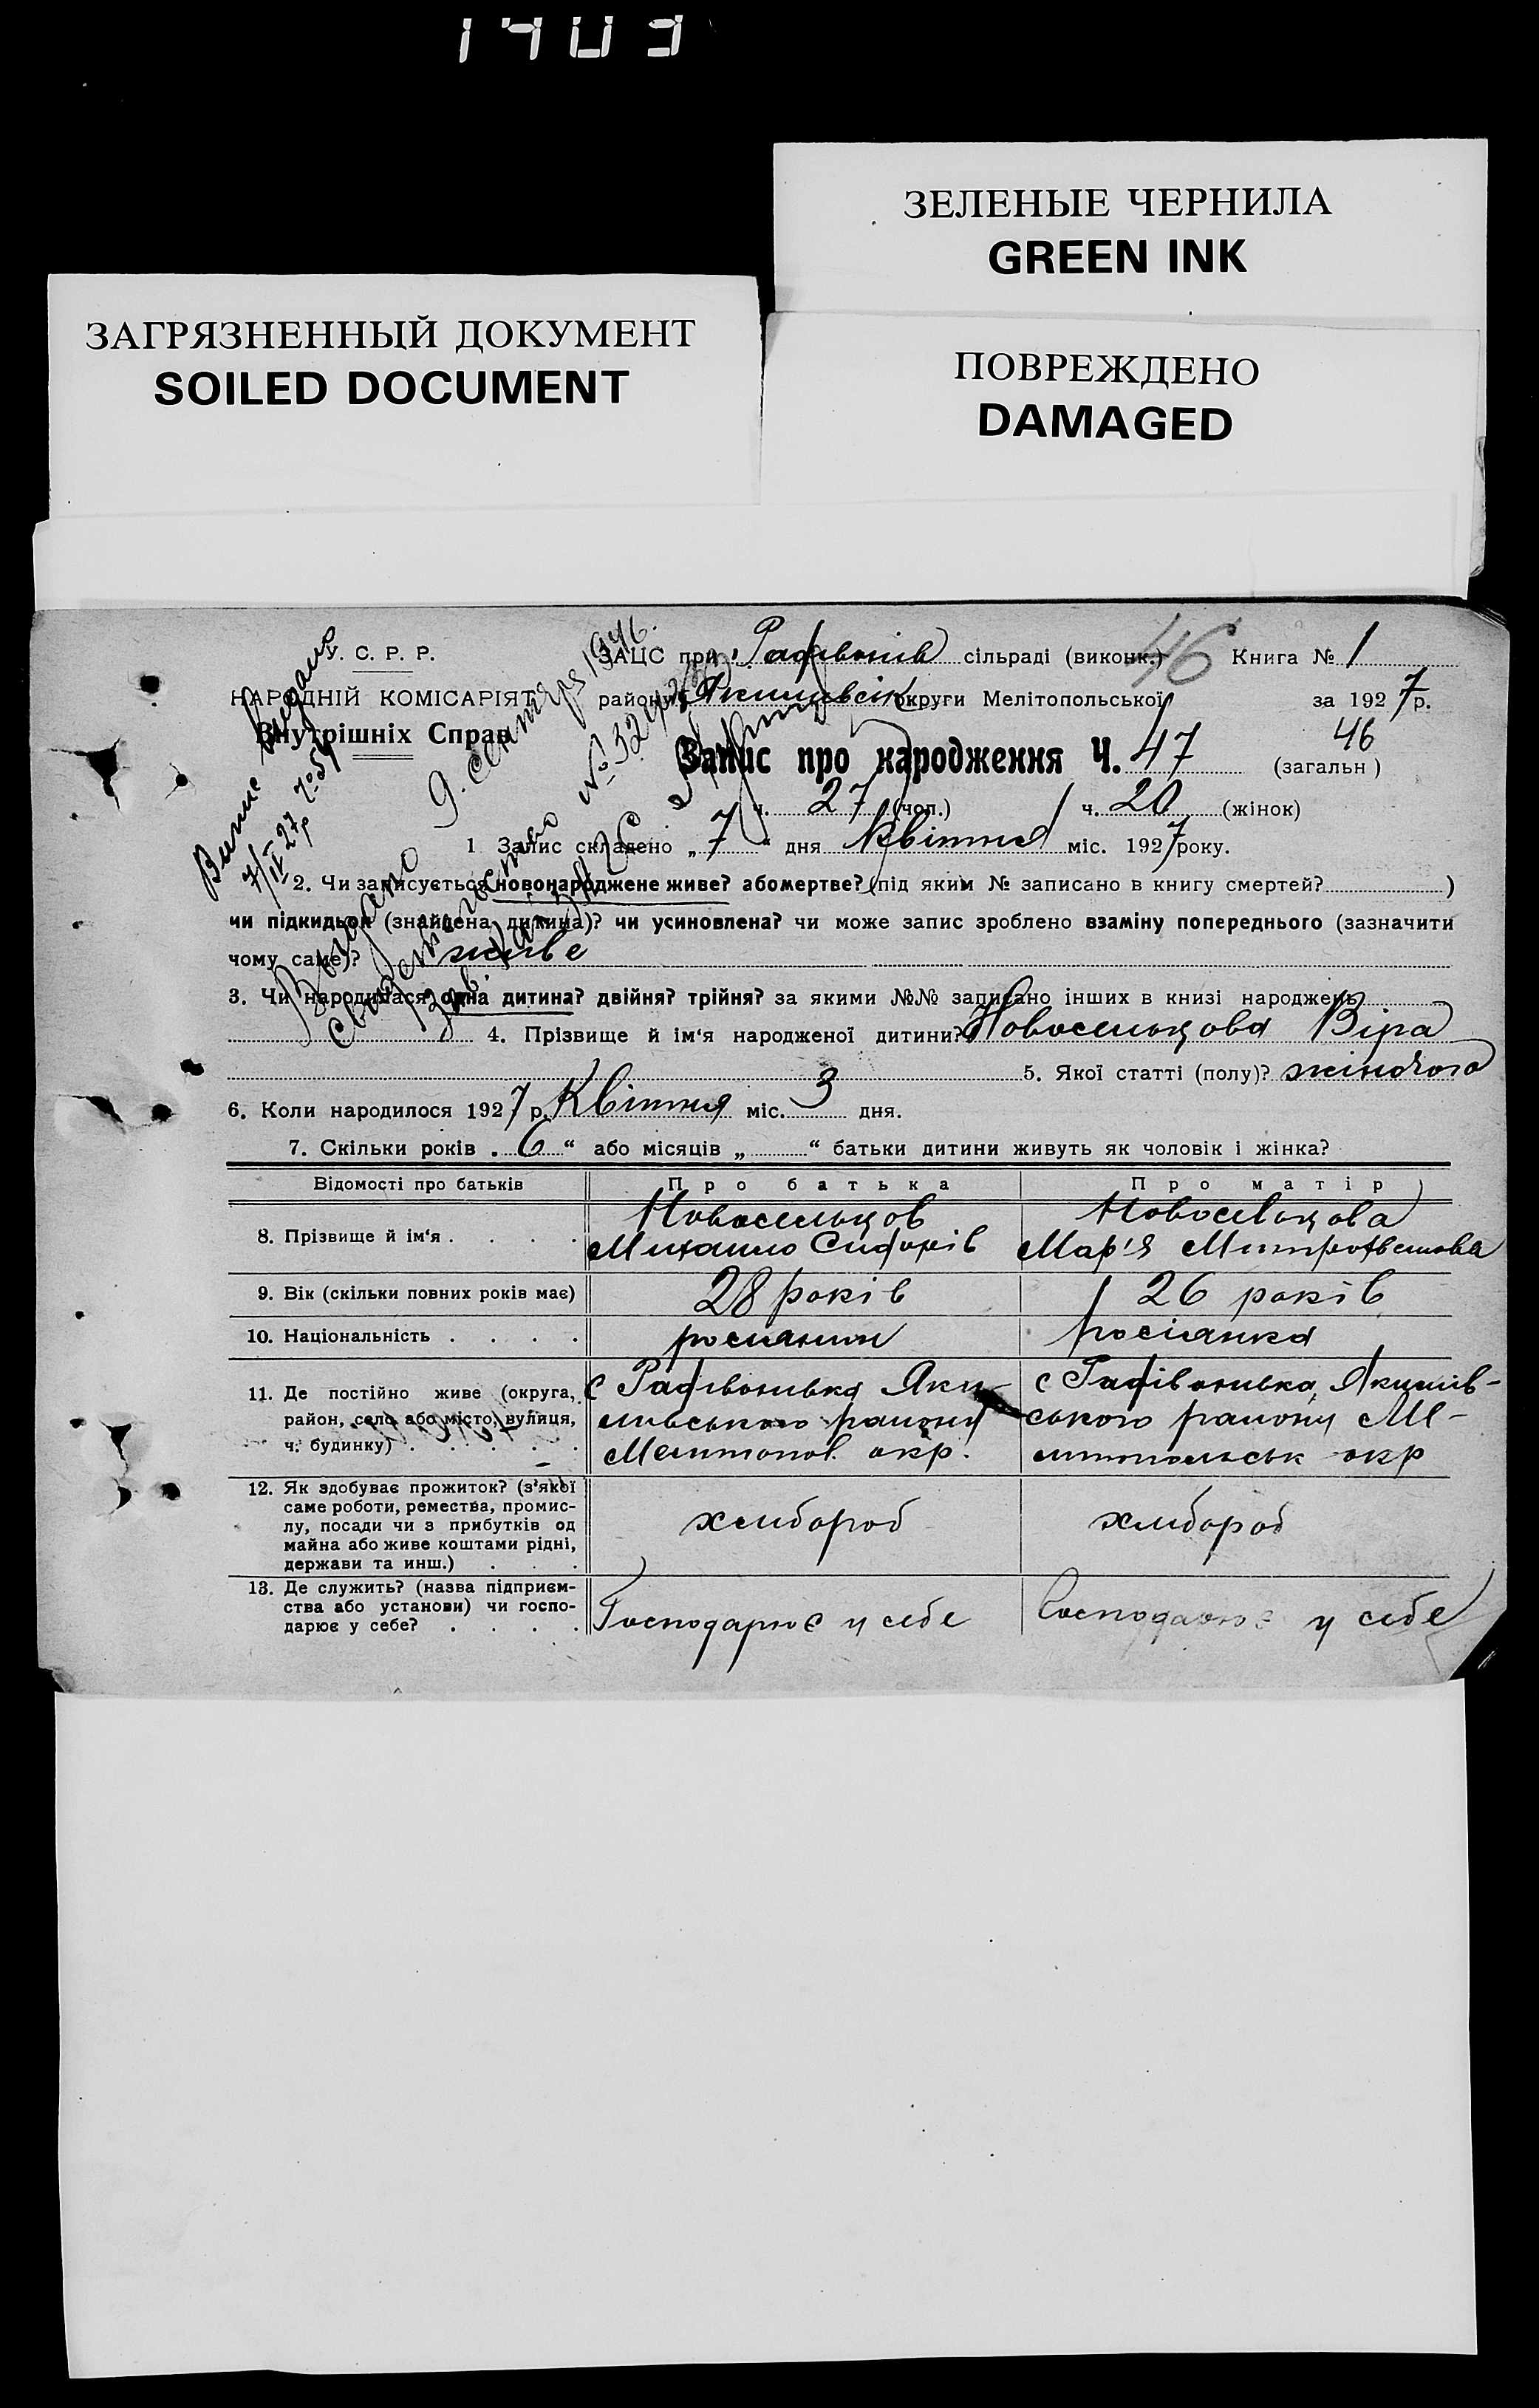 1403
ЗЕЛЕНЫЕ ЧЕРНИЛА
GREEN INK
ЗАГРЯЗНЕННЫЙ ДОКУМЕНТ
SOILED DOCUMENT
ПОВРЕЖДЕНО
DAMAGED
У. С. Р. Р.
НАРОДНІЙ КОМІСАРІЯТ
Внутрішніх Справ
Виписе видано
7/IV 27р № 51
Видано
свидетельство №
9. сентяря 1946.
46
ЗАЦС при сільраді (виконк.) Книга № 1
району округи Мелітопольської за 1927 р.
Запис про народження Ч. 47 46 (загальн)
ч. 27 (чол.) ч. 20 (жінок)
1 Запис складено „7" дня Квітня міс. 1927 року.
2. Чи записується новонароджене живе? або мертве? (під яким № записано в книгу смертей? )
чи підкидьок (знайдена дитина)? чи усиновлена? чи може запис зроблено взаміну попереднього (зазначити
чому саме)? живе
3. Чи народилася одна дитина? двійня? трійня? за якими №№ записано інших в книзі народжень
4. Прізвище й ім'я народженої дитини? Новосельцова Віра
5. Якої статті (полу)? жіночого
6. Коли народилося 1927 р. Квітня міс. 3 дня.
7. Скільки років „6" або місяців „ " батьки дитини живуть як чоловік і жінка?
Відомості про батьків Про батька Про матір
8. Прізвище й ім'я . . . . Новосельцов Новосельцова
Михаило Сидорів Мар'я
9. Вік (скільки повних років має) 28 років 26 років
10. Національність . . . . росиянин росіянка
11. Де постійно живе (округа,
район, село або місто, вулиця,
ч. будинку) . . . . . .
с Яки-
мивського району
Мелитопол. окр.
с Якимів-
ського району Ме-
литопольськ окр
12. Як здобуває прожиток? (з'якої
саме роботи, ремества, промис-
лу, посади чи з прибутків од
майна або живе коштами рідні,
держави та инш.) . . .
хлибороб хлибороб
13. Де служить? (назва підприєм-
ства або установи) чи госпо-
дарює у себе? . . . .
Господарює у себе Господарює у себе